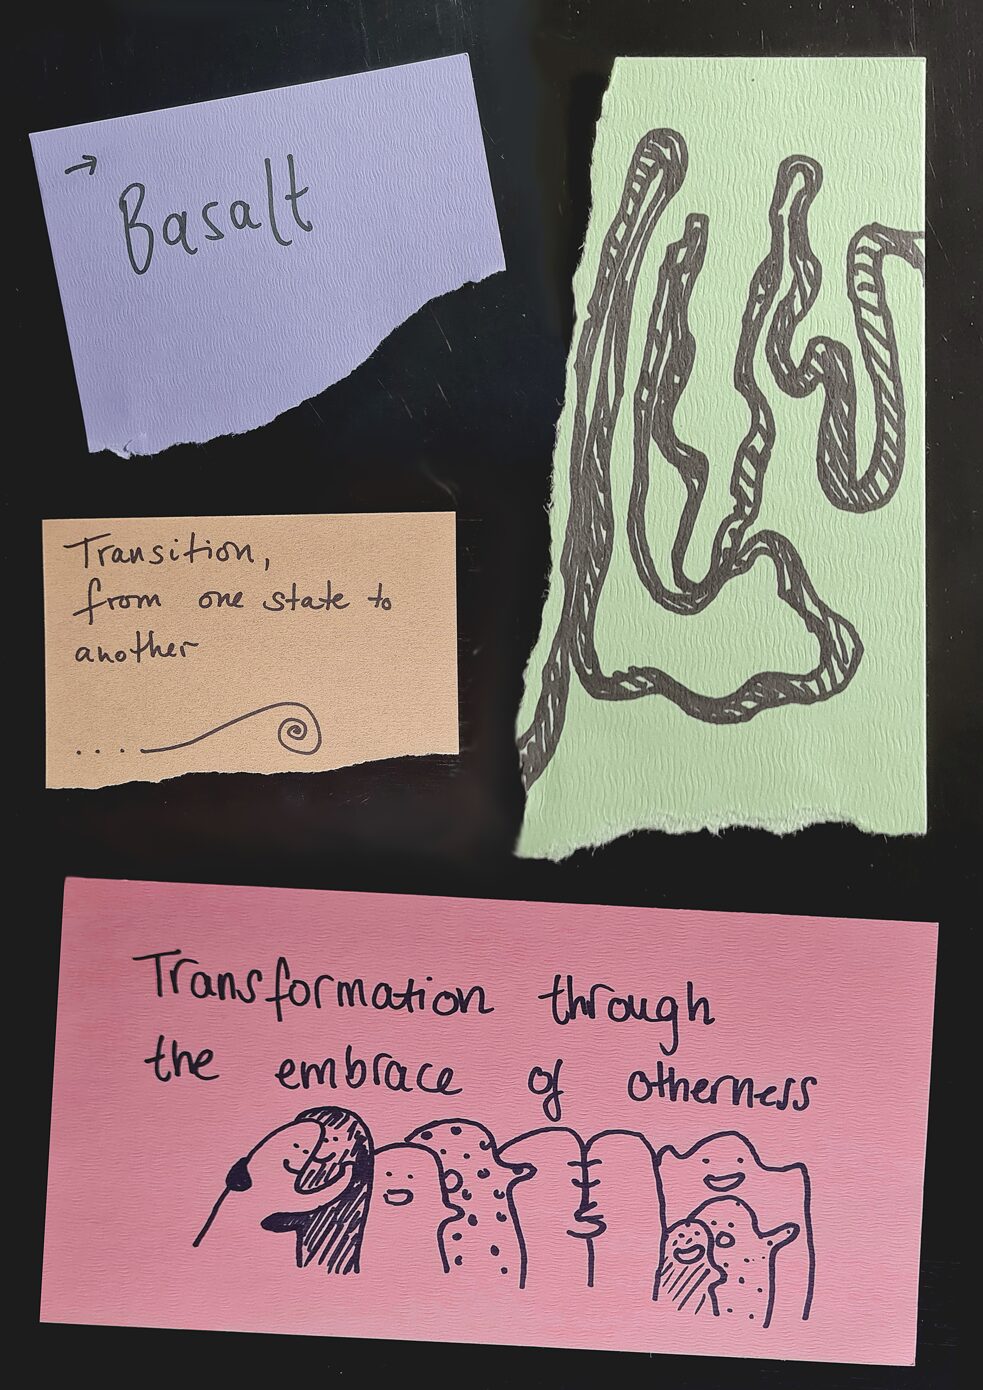 → Basalt
Transition,
from one state to
another
Transformation through
the embrace of otherness